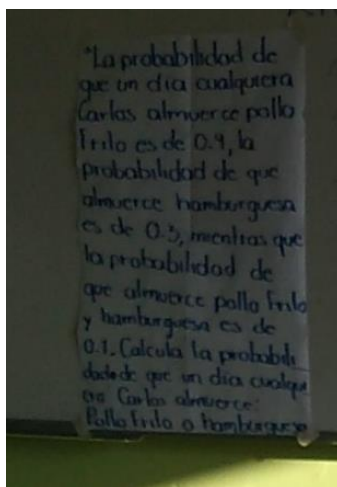 "La probabilidad de
que un día cualquiera
Carlos almuerce pollo
Frito es de 0.4, la
probabilidad de que
almuerce hamburguesa
es de 0.3, mientras que
la probabilidad de
que almuerce pollo frito
y hamburguesa es de
0.1. Calcula la probabili
dad de que un día cualqui
era Carlos almuerce:
Pollo Frito o hamburguesa